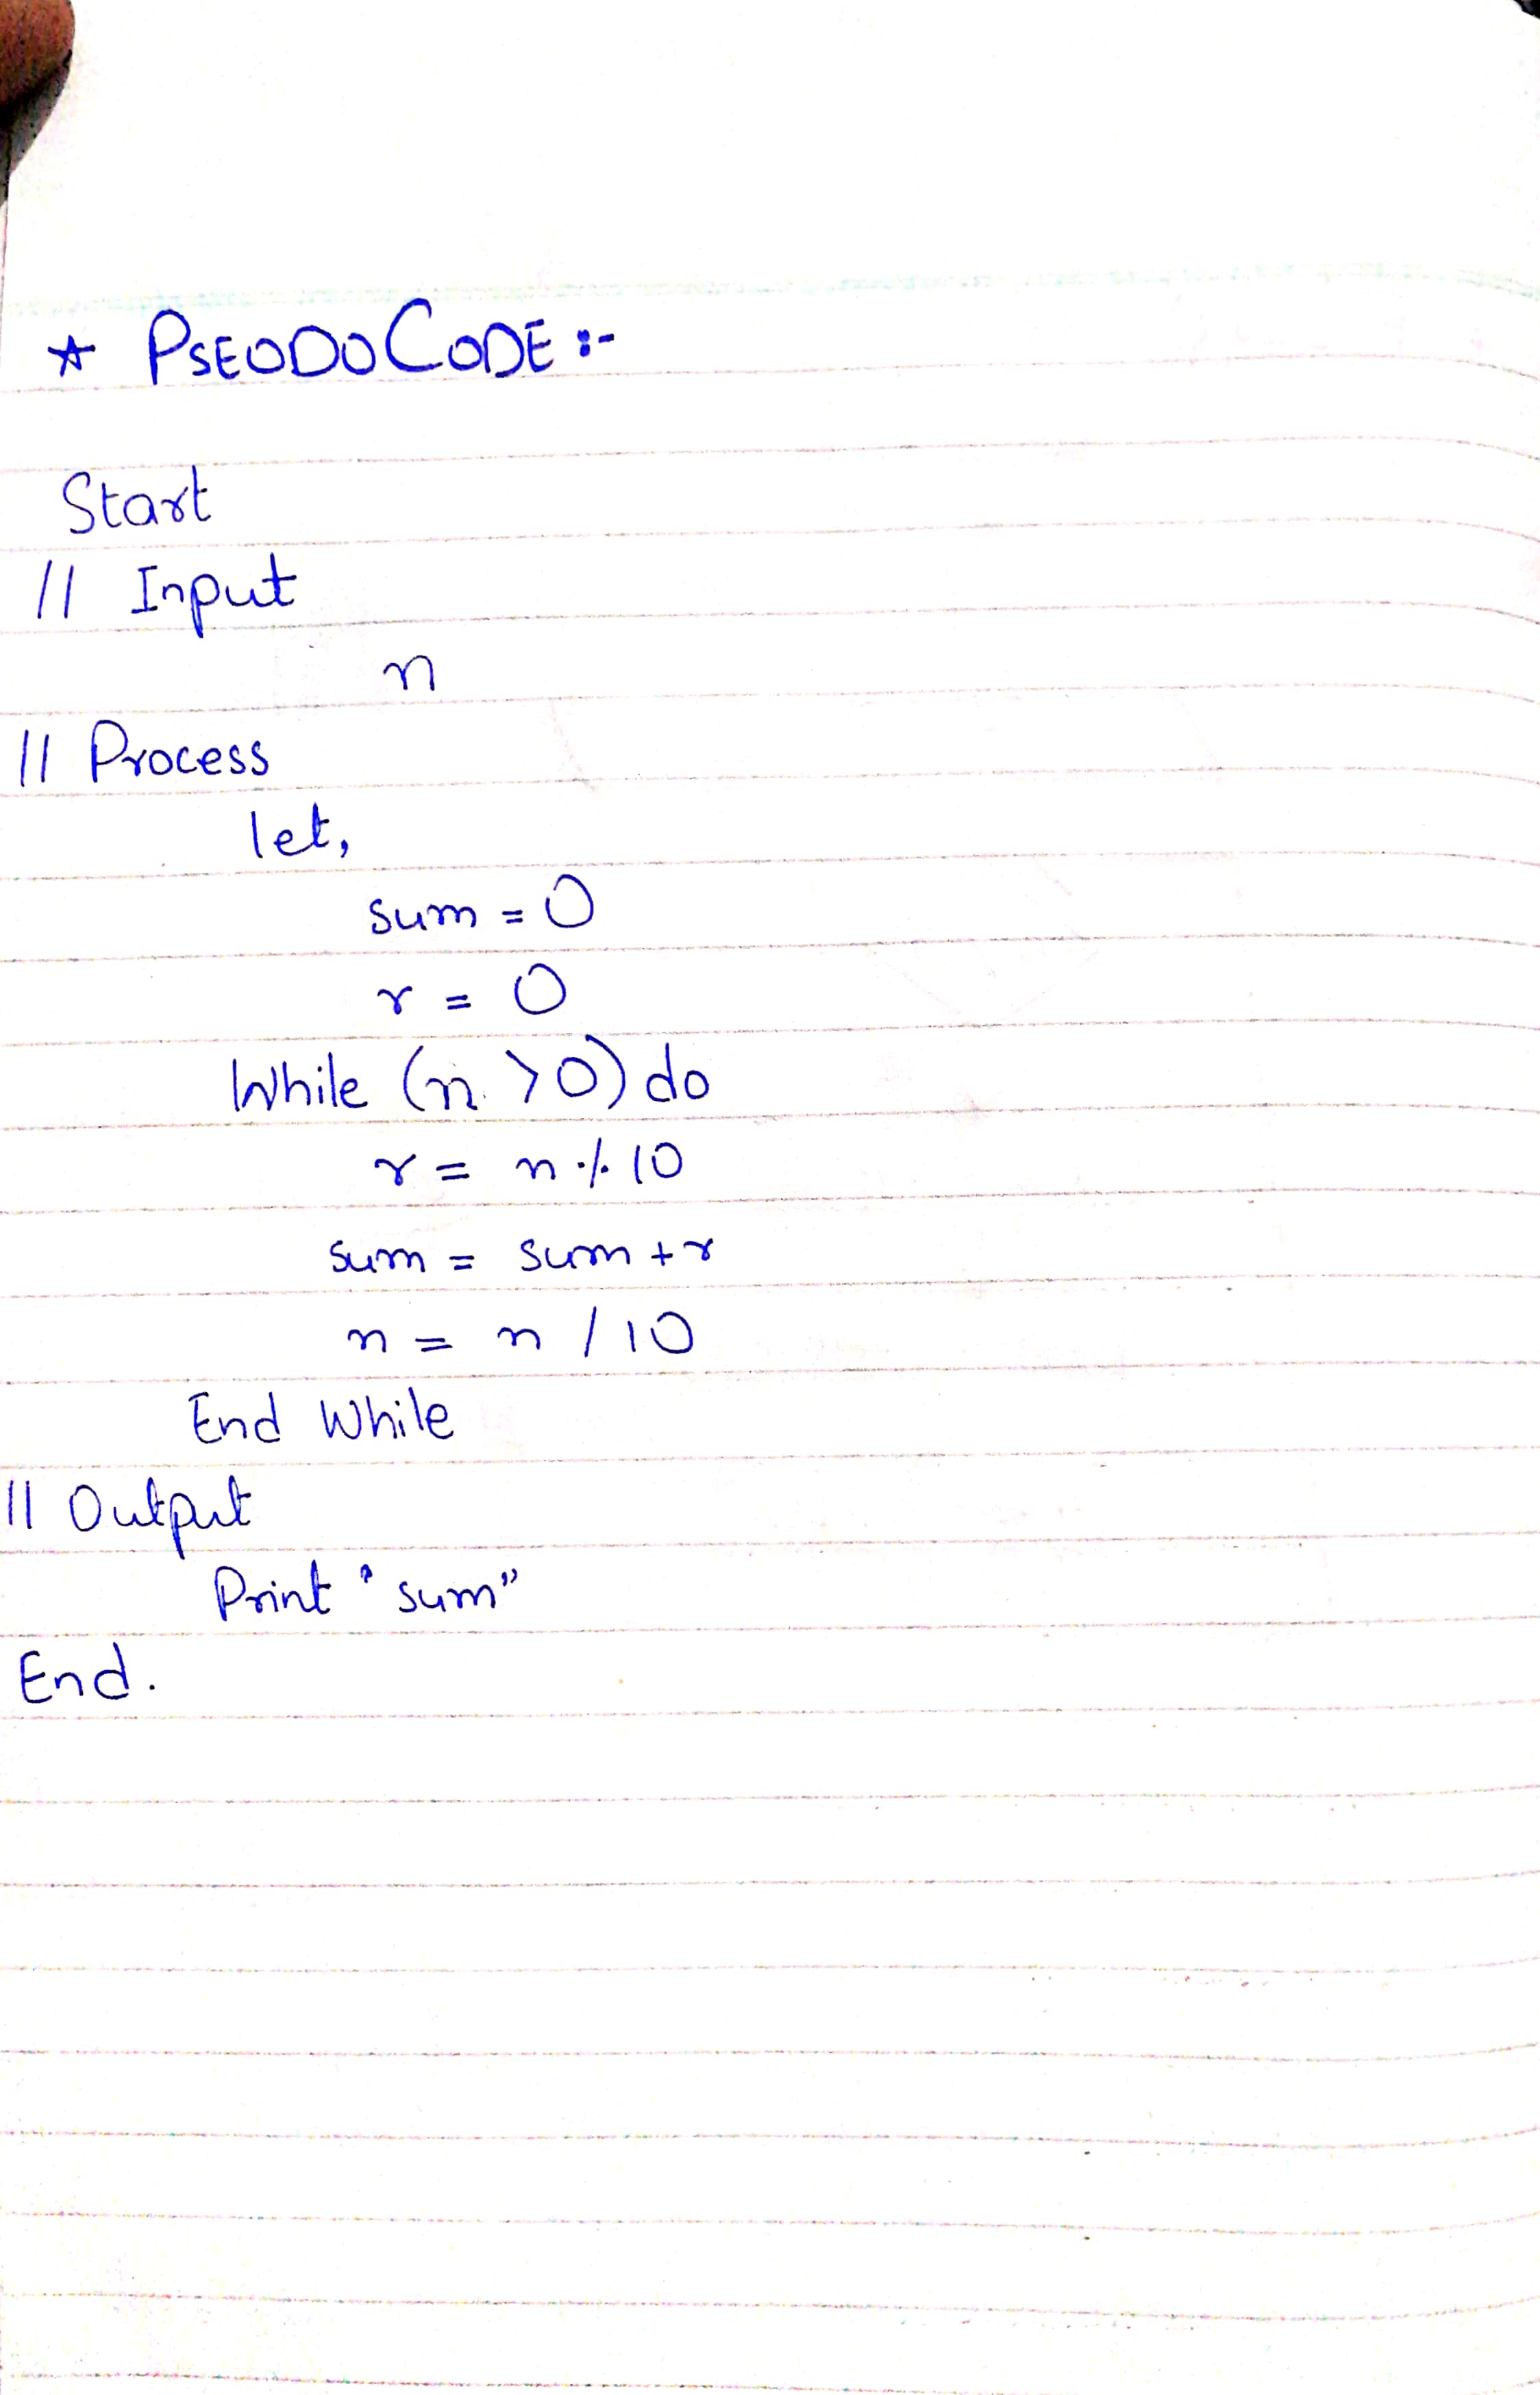 ☆ PSEODOCODE :-
Start
// Input
n
// Process
let,
sum = 0
r = 0
While (n > 0) do
r = n % 10
sum = sum + r
n = n / 10
End While
// Output
Print "sum"
End.